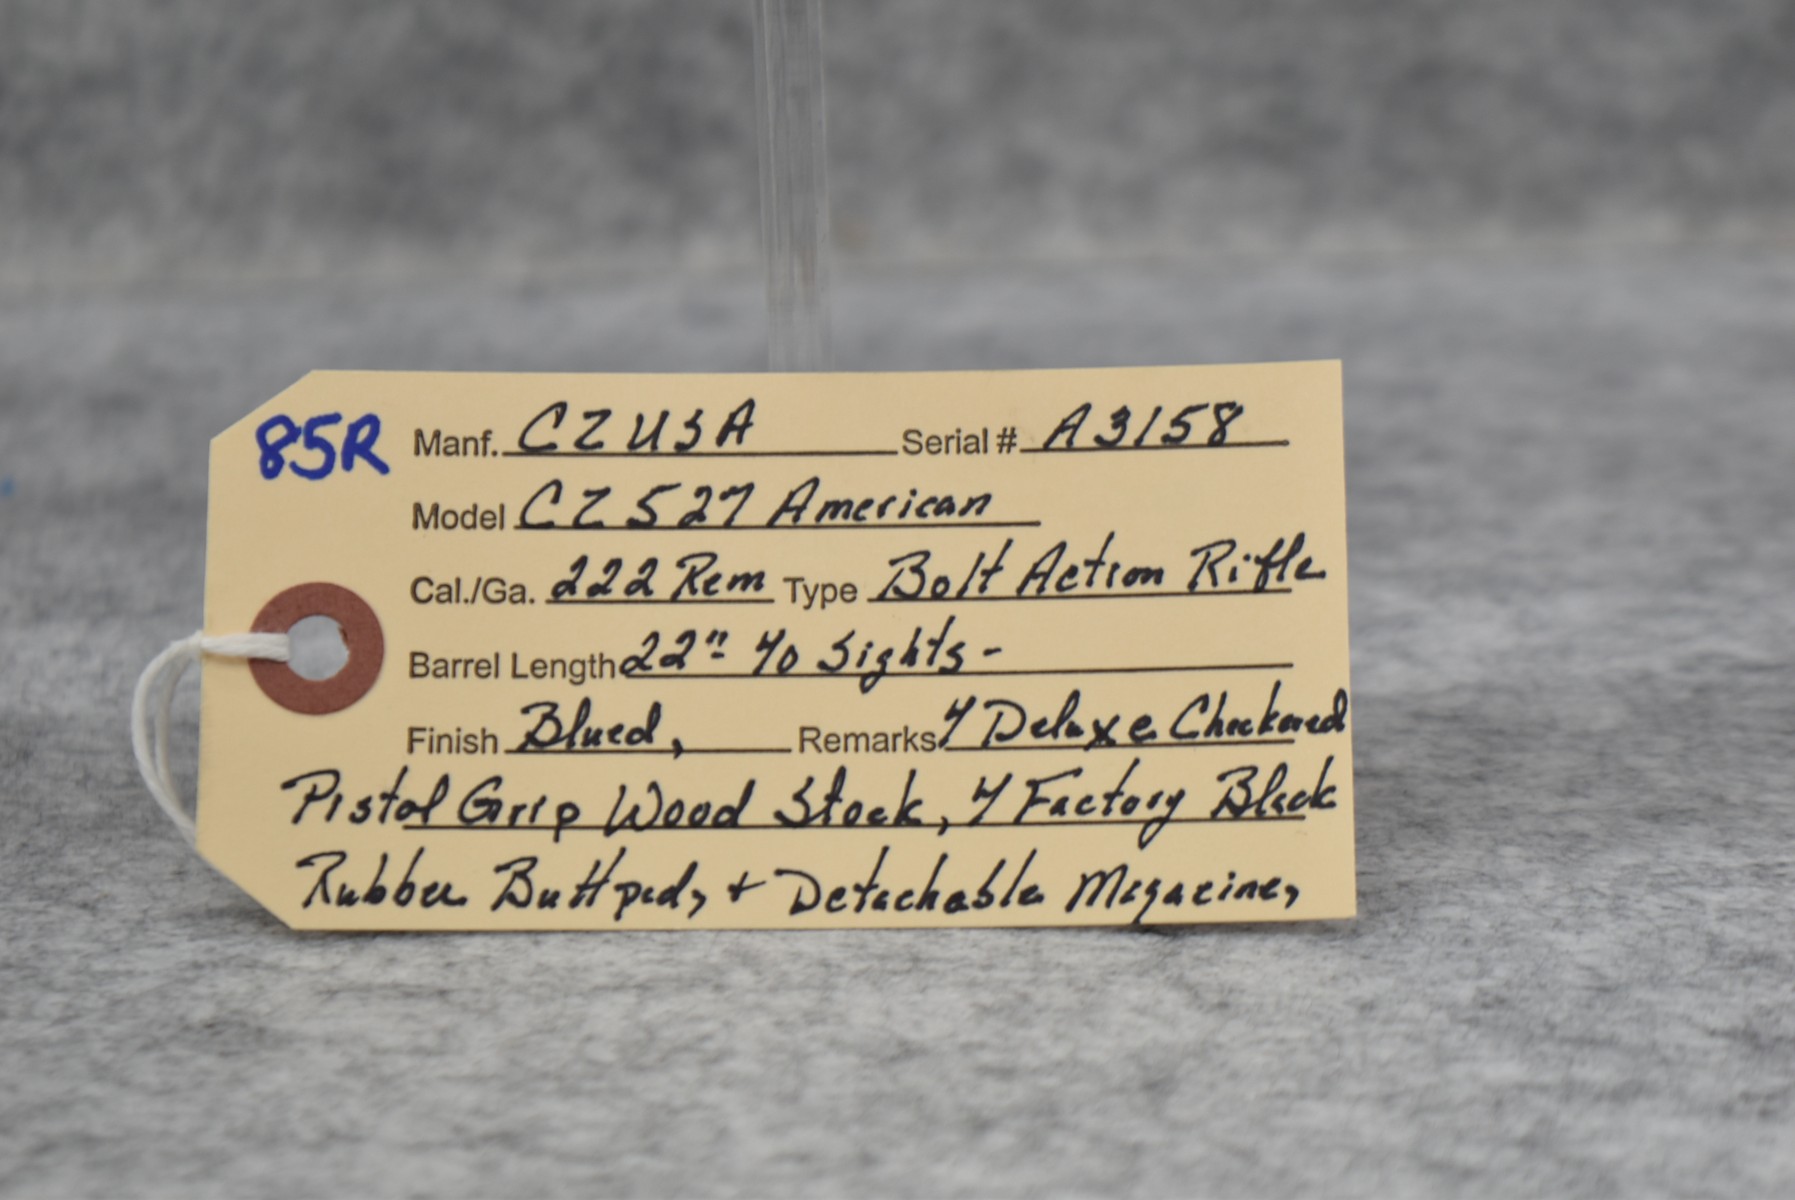 85R Manf. CZ USA Serial # A3158
Model CZ 527 American
Cal./Ga. 222 Rem Type Bolt Action Rifle
Barrel Length 22" Sights -
Finish Blued, Remarks Deluxe Checkered
Pistol Grip Wood Stock, Factory Black
Rubber Buttpad, + Detachable Magazine,